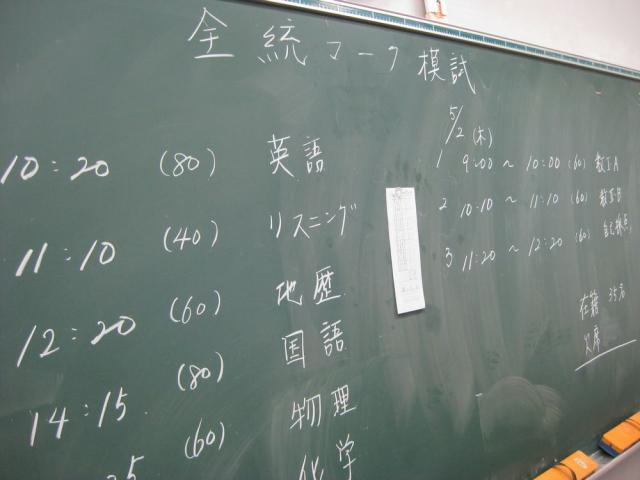 全統マーク模試
10:20 (80) 英語
11:10 (40) リスニング
12:20 (60) 地歴
14:15 (80) 国語
(60) 物理
化学
5/2 (木)
1 9:00 ~ 10:00 (60) 数ⅠA
2 10:10 ~ 11:10 (60) 数ⅡB
3 11:20 ~ 12:20 (60) 自己採点
在籍 35名
欠席